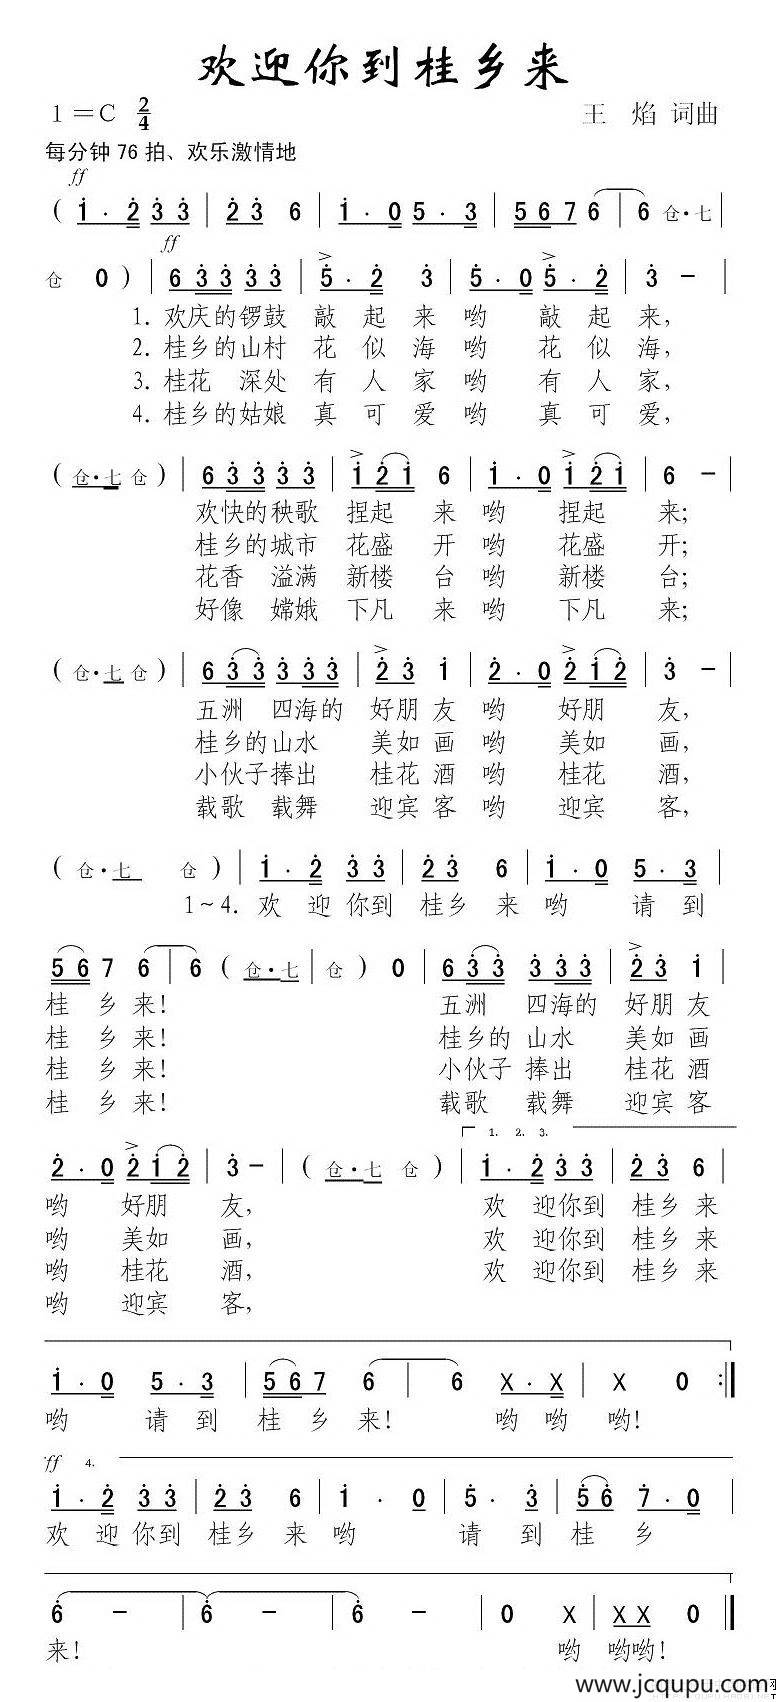 欢迎你到桂乡来
1=C 2/4
王 焰 词曲
每分钟76拍、欢乐激情地
ff
( 1·2 3 3 | 2 3 6 | 1·0 5·3 | 5 6 7 6 | 6 仓·七 |
ff
仓 0 ) | 6 3 3 3 3 | 5·2 3 | 5·0 5·2 | 3 - |
1. 欢庆的锣鼓 敲 起 来 哟 敲 起 来,
2. 桂乡的山村 花 似 海 哟 花 似 海,
3. 桂花 深处 有 人 家 哟 有 人 家,
4. 桂乡的姑娘 真 可 爱 哟 真 可 爱,
( 仓·七 仓 ) | 6 3 3 3 3 | 1 2 1 6 | 1·0 1 2 1 | 6 - |
欢快的秧歌 捏起 来 哟 捏起 来;
桂乡的城市 花盛 开 哟 花盛 开;
花香 溢满 新楼 台 哟 新楼 台;
好像 嫦娥 下凡 来 哟 下凡 来;
( 仓·七 仓 ) | 6 3 3 3 3 3 | 2 3 1 | 2·0 2 1 2 | 3 - |
五洲 四海的 好朋 友 哟 好朋 友,
桂乡的山水 美如 画 哟 美如 画,
小伙子捧出 桂花 酒 哟 桂花 酒,
载歌 载舞 迎宾 客 哟 迎宾 客,
( 仓·七 仓 ) | 1·2 3 3 | 2 3 6 | 1·0 5·3 |
1~4. 欢 迎 你到 桂乡 来 哟 请 到
5 6 7 6 | 6 ( 仓·七 | 仓 ) 0 | 6 3 3 3 3 3 | 2 3 1 |
桂 乡 来! 五洲 四海的 好朋 友
桂 乡 来! 桂乡的 山水 美如 画
桂 乡 来! 小伙子 捧出 桂花 酒
桂 乡 来! 载歌 载舞 迎宾 客
1. 2. 3.
2·0 2 1 2 | 3 - | ( 仓·七 仓 ) | 1·2 3 3 | 2 3 6 |
哟 好朋 友, 欢 迎你到 桂乡 来
哟 美如 画, 欢 迎你到 桂乡 来
哟 桂花 酒, 欢 迎你到 桂乡 来
哟 迎宾 客,
1·0 5·3 | 5 6 7 6 | 6 X·X | X 0 :|
哟 请 到 桂 乡 来! 哟 哟 哟!
ff 4.
1·2 3 3 | 2 3 6 | 1·0 | 5·3 | 5 6 7·0 |
欢 迎 你到 桂乡 来 哟 请 到 桂 乡
6 - | 6 - | 6 - | 0 X | X X 0 |
来! 哟 哟哟!
www.jcqupu.com